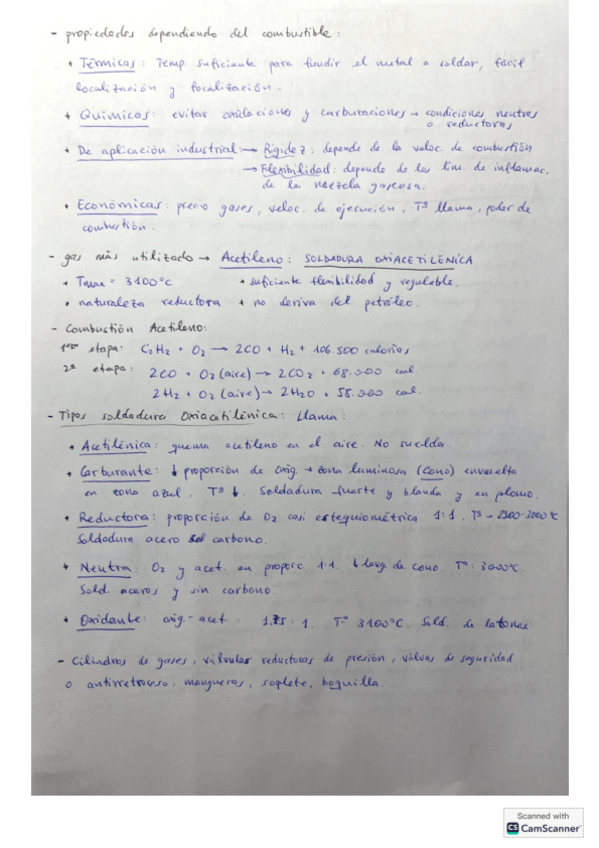 - propiedades dependiendo del combustible:
• Térmicas: Temp suficiente para fundir el metal a soldar, fácil
localización y focalización.
• Químicas: evitar oxidaciones y carburaciones → condiciones neutras
o reductoras
• De aplicación industrial: → Rigidez: depende de la veloc. de combustión
→ Flexibilidad: depende de los lím. de inflamac.
de la mezcla gaseosa.
• Económicas: precio gases, veloc. de ejecución, Tª llama, poder de
combustión.
- gas más utilizado → Acetileno: SOLDADURA OXIACETILÉNICA
• Tmax = 3100°C • suficiente flexibilidad y regulable.
• naturaleza reductora • no deriva del petróleo.
- Combustión Acetileno:
1ª etapa: C2H2 + O2 → 2CO + H2 + 106.500 calorías
2ª etapa: 2CO + O2 (aire) → 2CO2 + 68.000 cal.
2H2 + O2 (aire) → 2H2O + 58.000 cal.
- Tipos soldadura Oxiacetilénica: Llama:
• Acetilénica: quema acetileno en el aire. No suelda.
• Carburante: ↓ proporción de oxíg. → zona luminosa (cono) envuelta
en zona azul. Tª ↓. Soldadura fuerte y blanda y en plomo.
• Reductora: proporción de O2 casi estequiométrica 1:1. Tª - 2900-3000°C
Soldadura acero carbono.
• Neutra: O2 y acet. en proporc. 1:1. ↓ long. de cono. Tª: 3000°C.
Sold. aceros y sin carbono.
• Oxidante: oxíg.- acet: 1,75 : 1. Tª 3100°C. Sold. de latones
- Cilindros de gases, válvulas reductoras de presión, válvas de seguridad
o antirretroceso, mangueras, soplete, boquilla.
Scanned with
CS CamScanner